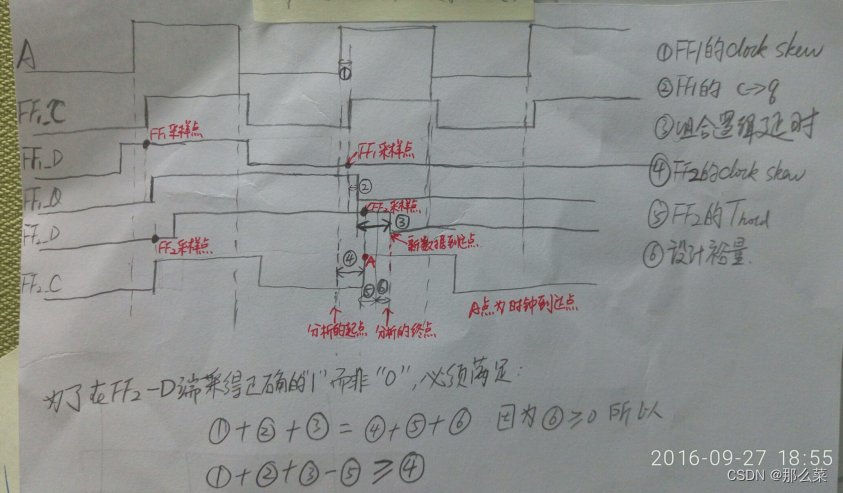 A
①FF1的clock skew
①
②FF1的 c→q
FF1_C
③组合逻辑延时
FF1采样点
FF1_D
FF1采样点
④FF2的clock skew
②
FF1_Q
FF2采样点
③
⑤FF2的Thold
FF2_D
FF2采样点
新数据到达点
⑥设计裕量
④
A
FF2_C
⑤
⑥
A点为时钟到达点
分析的起点
分析的终点
为了在FF2-D端采得正确的"1"而非"0",必须满足:
①+②+③=④+⑤+⑥ 因为⑥≥0所以
①+②+③-⑤≥④
2016-09-27 18:55
CSDN @那么菜